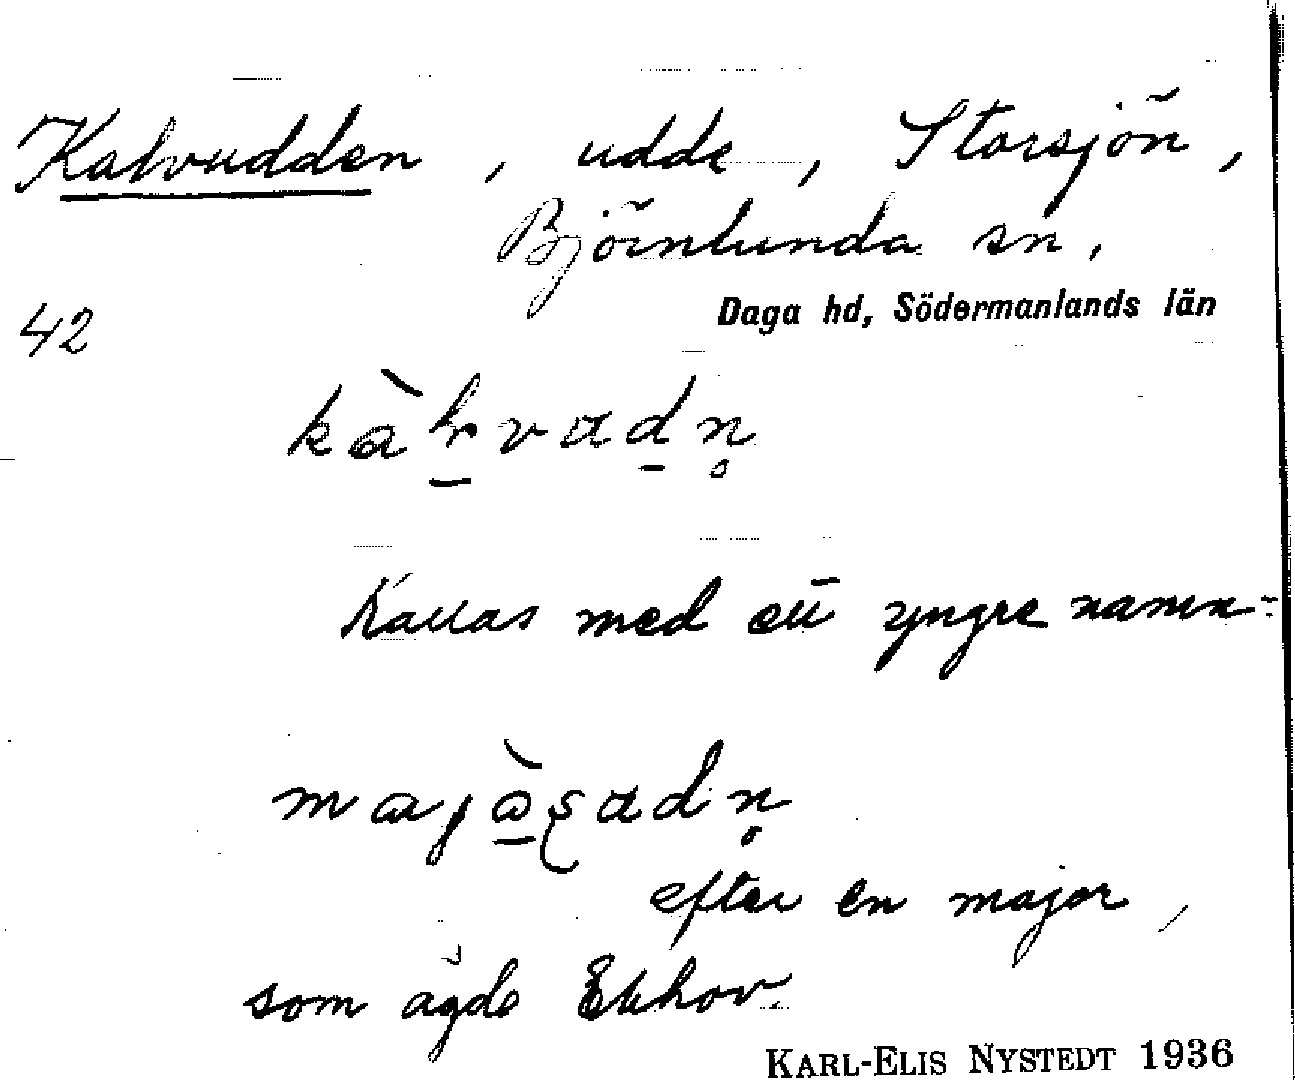 Kalvudden, udde, Storsjön,
Björnlunda sn,
Daga hd, Södermanlands län
42
Kallas med ett yngre namn:
efter en major,
som ägde Ekhov.
KARL-ELIS NYSTEDT 1936